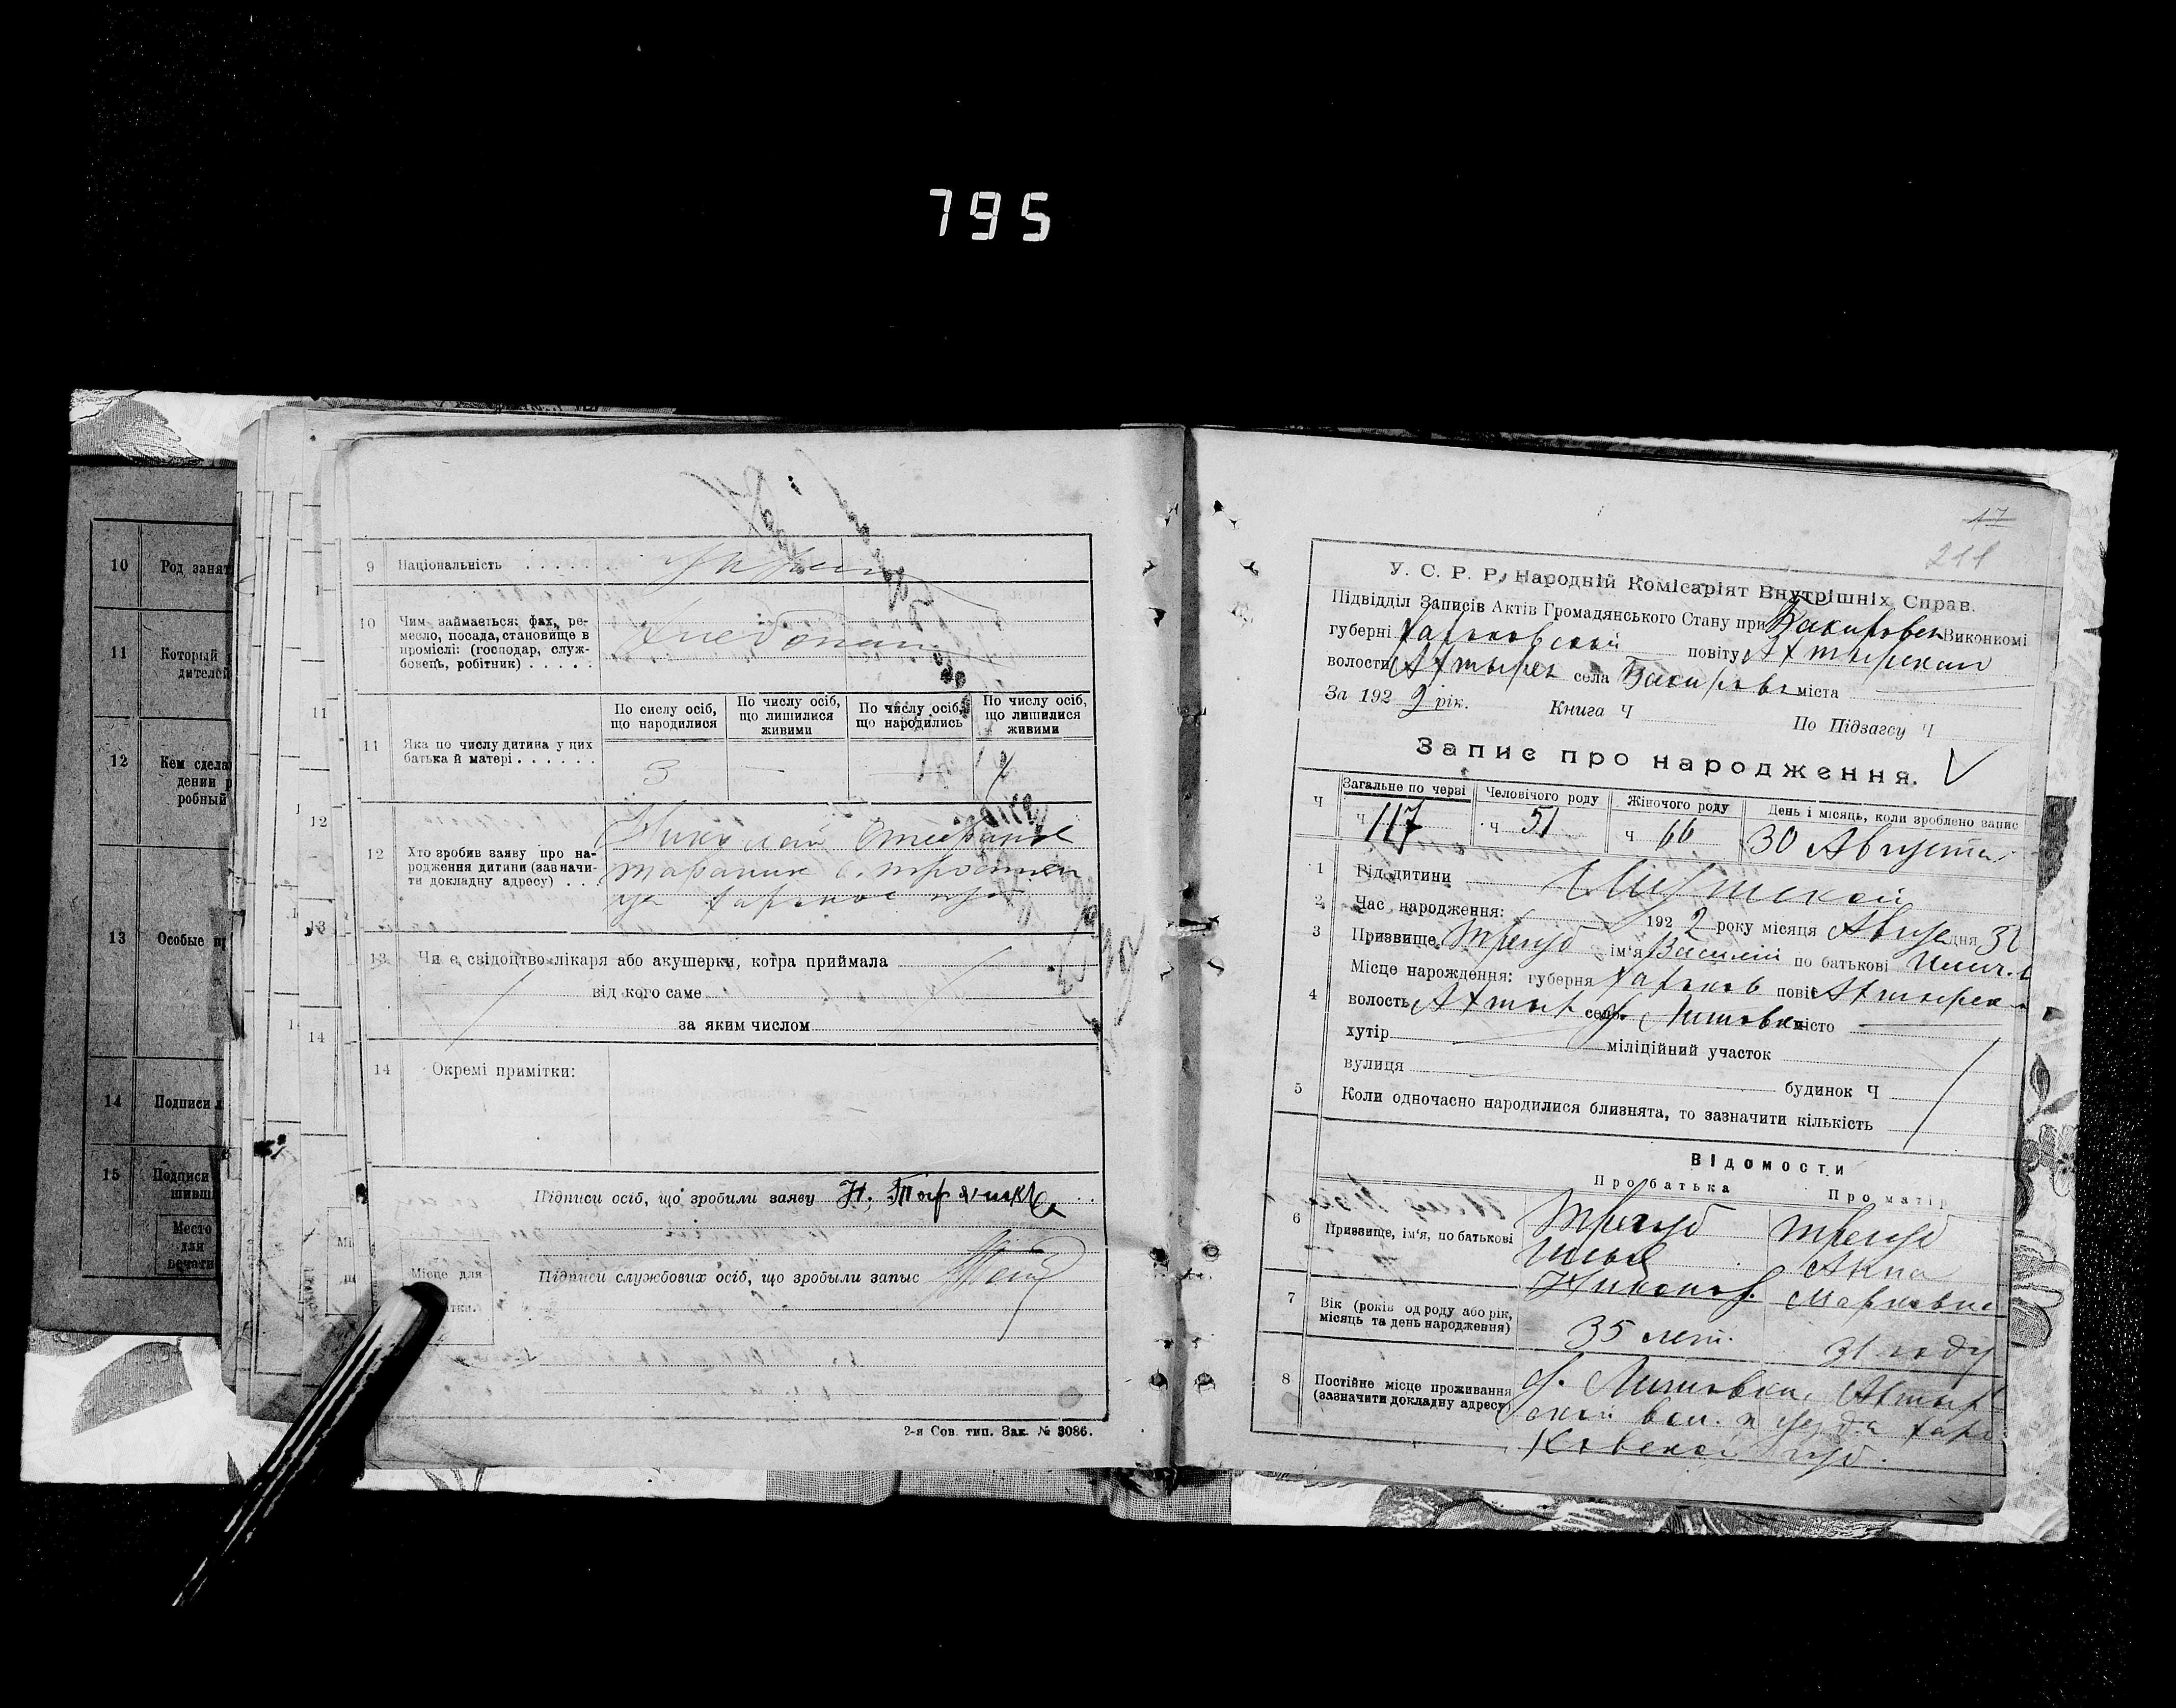 795
10 Род занят
11 Который
дителей
12 Кем сдела
дении р
робный
13 Особые пр
14 Подписи л
15 Подписи
шивши
Место
для
печати
11
12
13
14
9 Національність
10 Чим займається: фах, ре-
месло, посада, становище в
промислі: (господар, служ-
бовець, робітник)
Хлебопаш
11 Яка по числу дитина у цих
батька й матері
По сислу осіб,
що народилися
По числу осіб,
що лишилися
живими
По числу осіб,
що народились
По числу осіб,
що лишилися
живими
3 —
12 Хто зробив заяву про на-
родження дитини (зазначи-
ти докладну адресу)
Николай
13 Чи є свідоцтво лікаря або акушерки, котра приймала
від кого саме
за яким числом
14 Окремі примітки:
Підписи осіб, що зробили заяву Н.
Підписи службових осіб, що зробыли запыс
Місце для
2-я Сов. тип. Зак. № 3086.
17
211
У. С. Р. Р. Народній Комісаріят Внутрішніх Справ.
Підвідділ Записів Актів Громадянського Стану при Бакировск Виконкомі
губерні Харьковской повіту Ахтырскаи
волости Ахтырск села Бакировк міста
За 192 2 рік. Книга Ч По Підзагсу Ч
Запис про народження.
Ч Загальне по черві Человічого роду Жіночого роду День і місяць, коли зроблено запис
ч 117 ч 51 ч 66 30 Августа
1 Рід дитини Мужской
2 Час народження: 192 2 року місяця Августа дня
3 Призвище Трегуб ім'я Василий по батькові Ильич
4 Місце нарождення: губерня Харьков повіт Ахтырск
волость Ахтыр село місто
хутір міліційний участок
вулиця будинок Ч
5 Коли одночасно народилися близнята, то зазначити кількість
Відомости
Про батька Про матір
6 Призвище, ім'я, по батькові
Трегуб Трегуб
Илья Анна
Никонов. Марковна
7 Вік (років од роду або рік,
місяць та день народження)
35 лет. 31 году
8 Постійне місце проживання
(зазначити докладну адресу)
Ахтыр
ской вол. и уезда Харь
ковской губ.